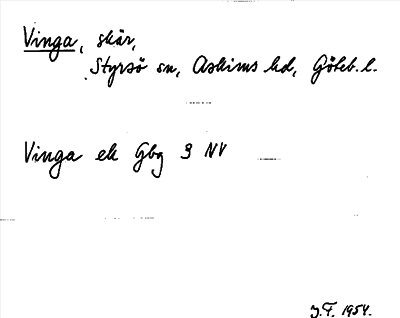 Vinga, skär,
Styrsö sn, Askims hd, Göteb. l.
Vinga ek Gbg 3 NV
J.F. 1954.